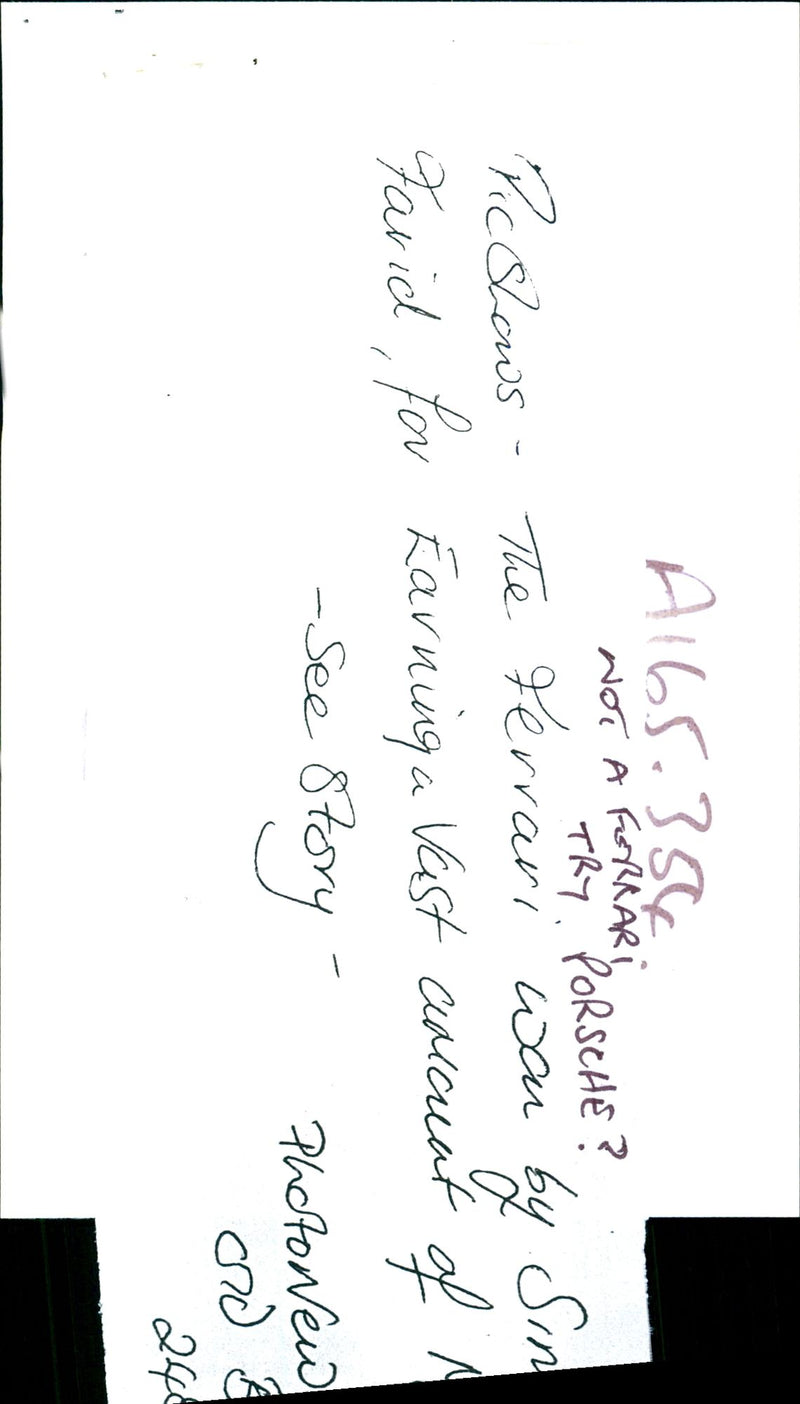 A165.35
NOT A FERRARI
TRY PORSCHE?
Pic Shows - The Ferrari won by Sin
Farid, for Earning a Vast amount of
- See Story -
PhotoNews